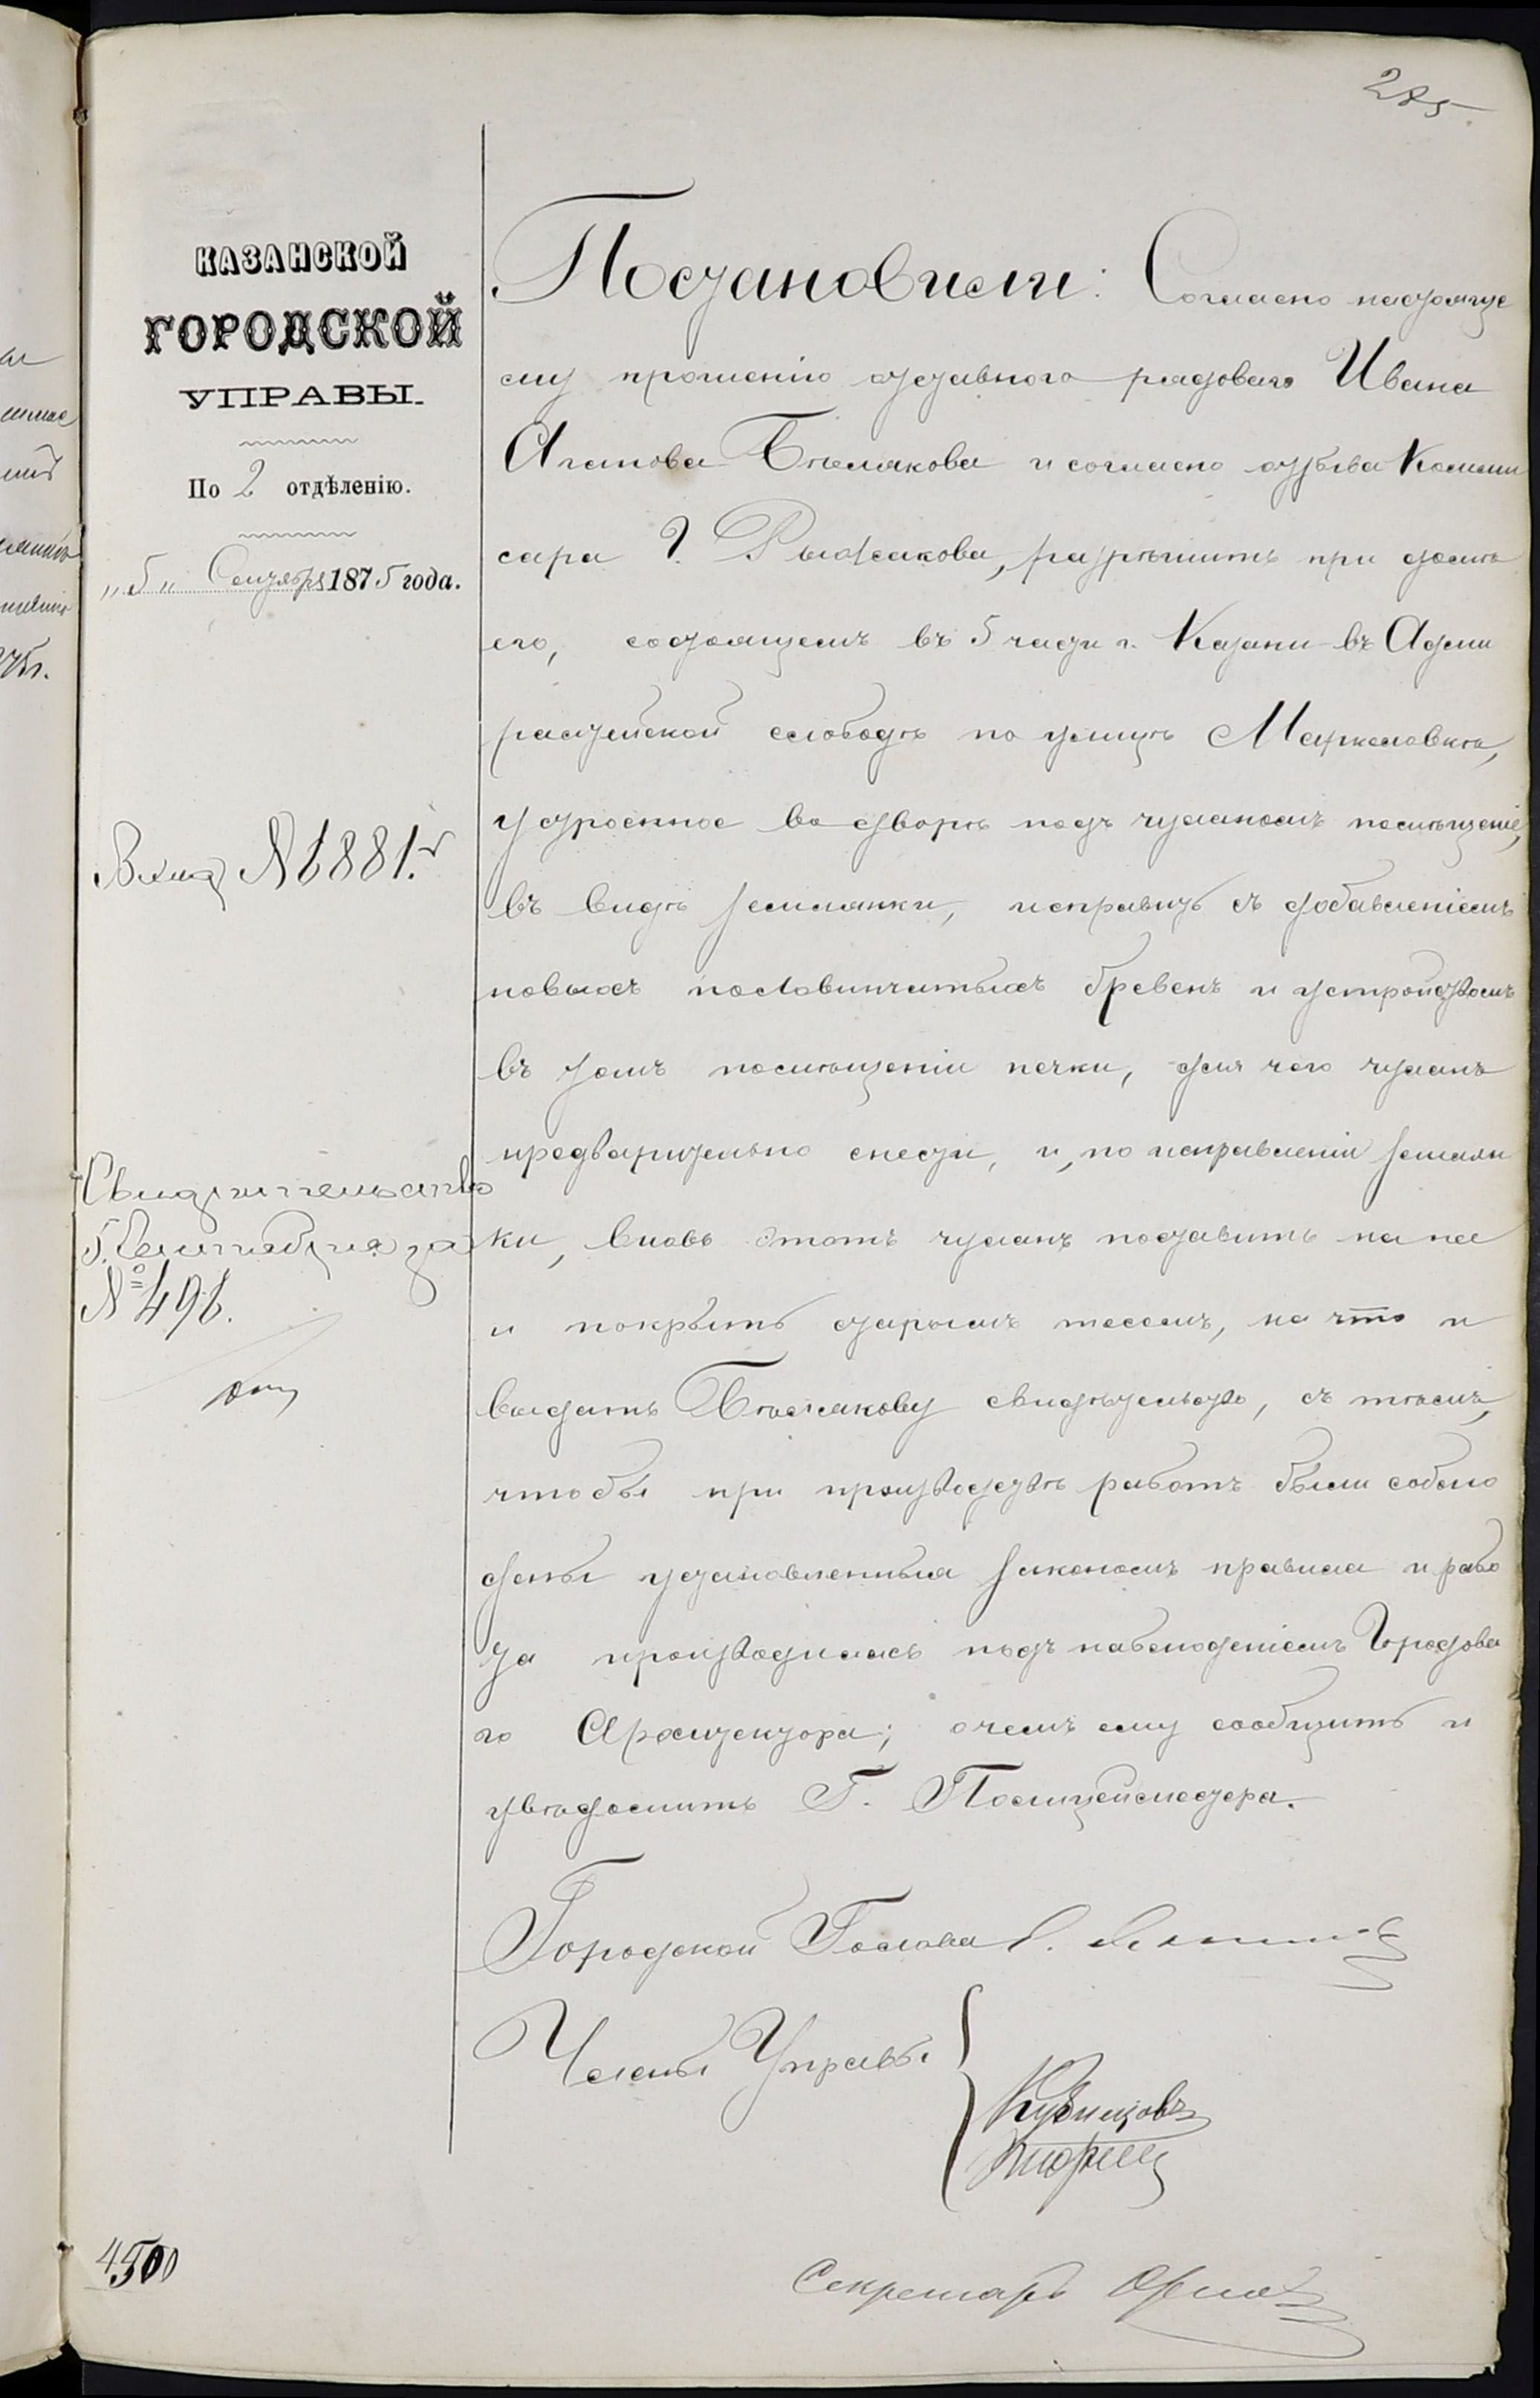 285.
КАЗАНСКОЙ
ГОРОДСКОЙ
УПРАВЫ.
По 2 отдѣленію.
„5„ Сентября 1875 года.
Вход № 6881.
Свидѣтельство
5. Сентября за
№ 496.
4500
Постановили: Согласно настояще
му прошенію отставного рядоваго Ивана
Агапова Бѣлякова и согласно отзыва Комми
сара Г. Рыжакова, разрѣшить при домѣ
его, состоящемъ въ 5 части г. Казани въ Адми
ралтейской слободѣ по улицѣ
устроенное во дворѣ подъ чуланомъ помѣщеніе,
въ видѣ землянки, исправить съ добавленіемъ
новыхъ половинчатыхъ бревенъ и устройствомъ
въ томъ помѣщеніи печки, для чего чуланъ
предварительно снести, и, по исправленіи землян
ки, вновь этотъ чуланъ поставить на нея
и покрыть старымъ тесомъ, на что и
выдать Бѣлякову свидѣтельство, съ тѣмъ,
чтобы при производствѣ работъ были соблю
дены установленныя закономъ правила и рабо
та производилась подъ наблюденіемъ Городова
го Архитектора; о чемъ ему сообщить и
увѣдомить Г. Полицейместера.
Городской Голова
Члены Управы
Кузнецовъ
Секретарь